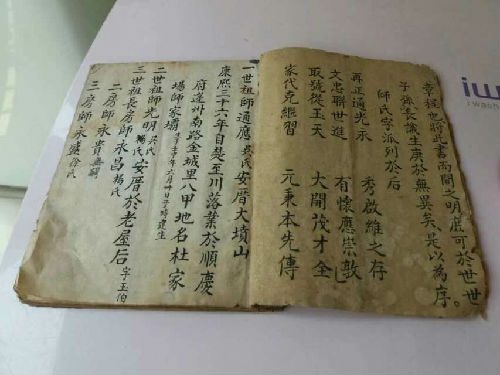 章程也將此書而開之明庶可於世世
子孫長識生庚於無異矣是以為序。
師氏字派列於后
再正通光永 秀啟維之存
文忠聯世進 有懷應崇敦
取號從玉天 大開茂才全
家代克繼習 元秉本先傳
一世祖師通應吳氏安厝大墳山
康熙三十六年自楚至川落業於順慶
府蓬州南路金城里八甲地名杜家
塲師家壩
二世祖師光明吳氏
三世長房師永昌楊氏安厝於老屋后字玉伯
二房師永貴無嗣
三房師永盛徐氏
iw
iwann